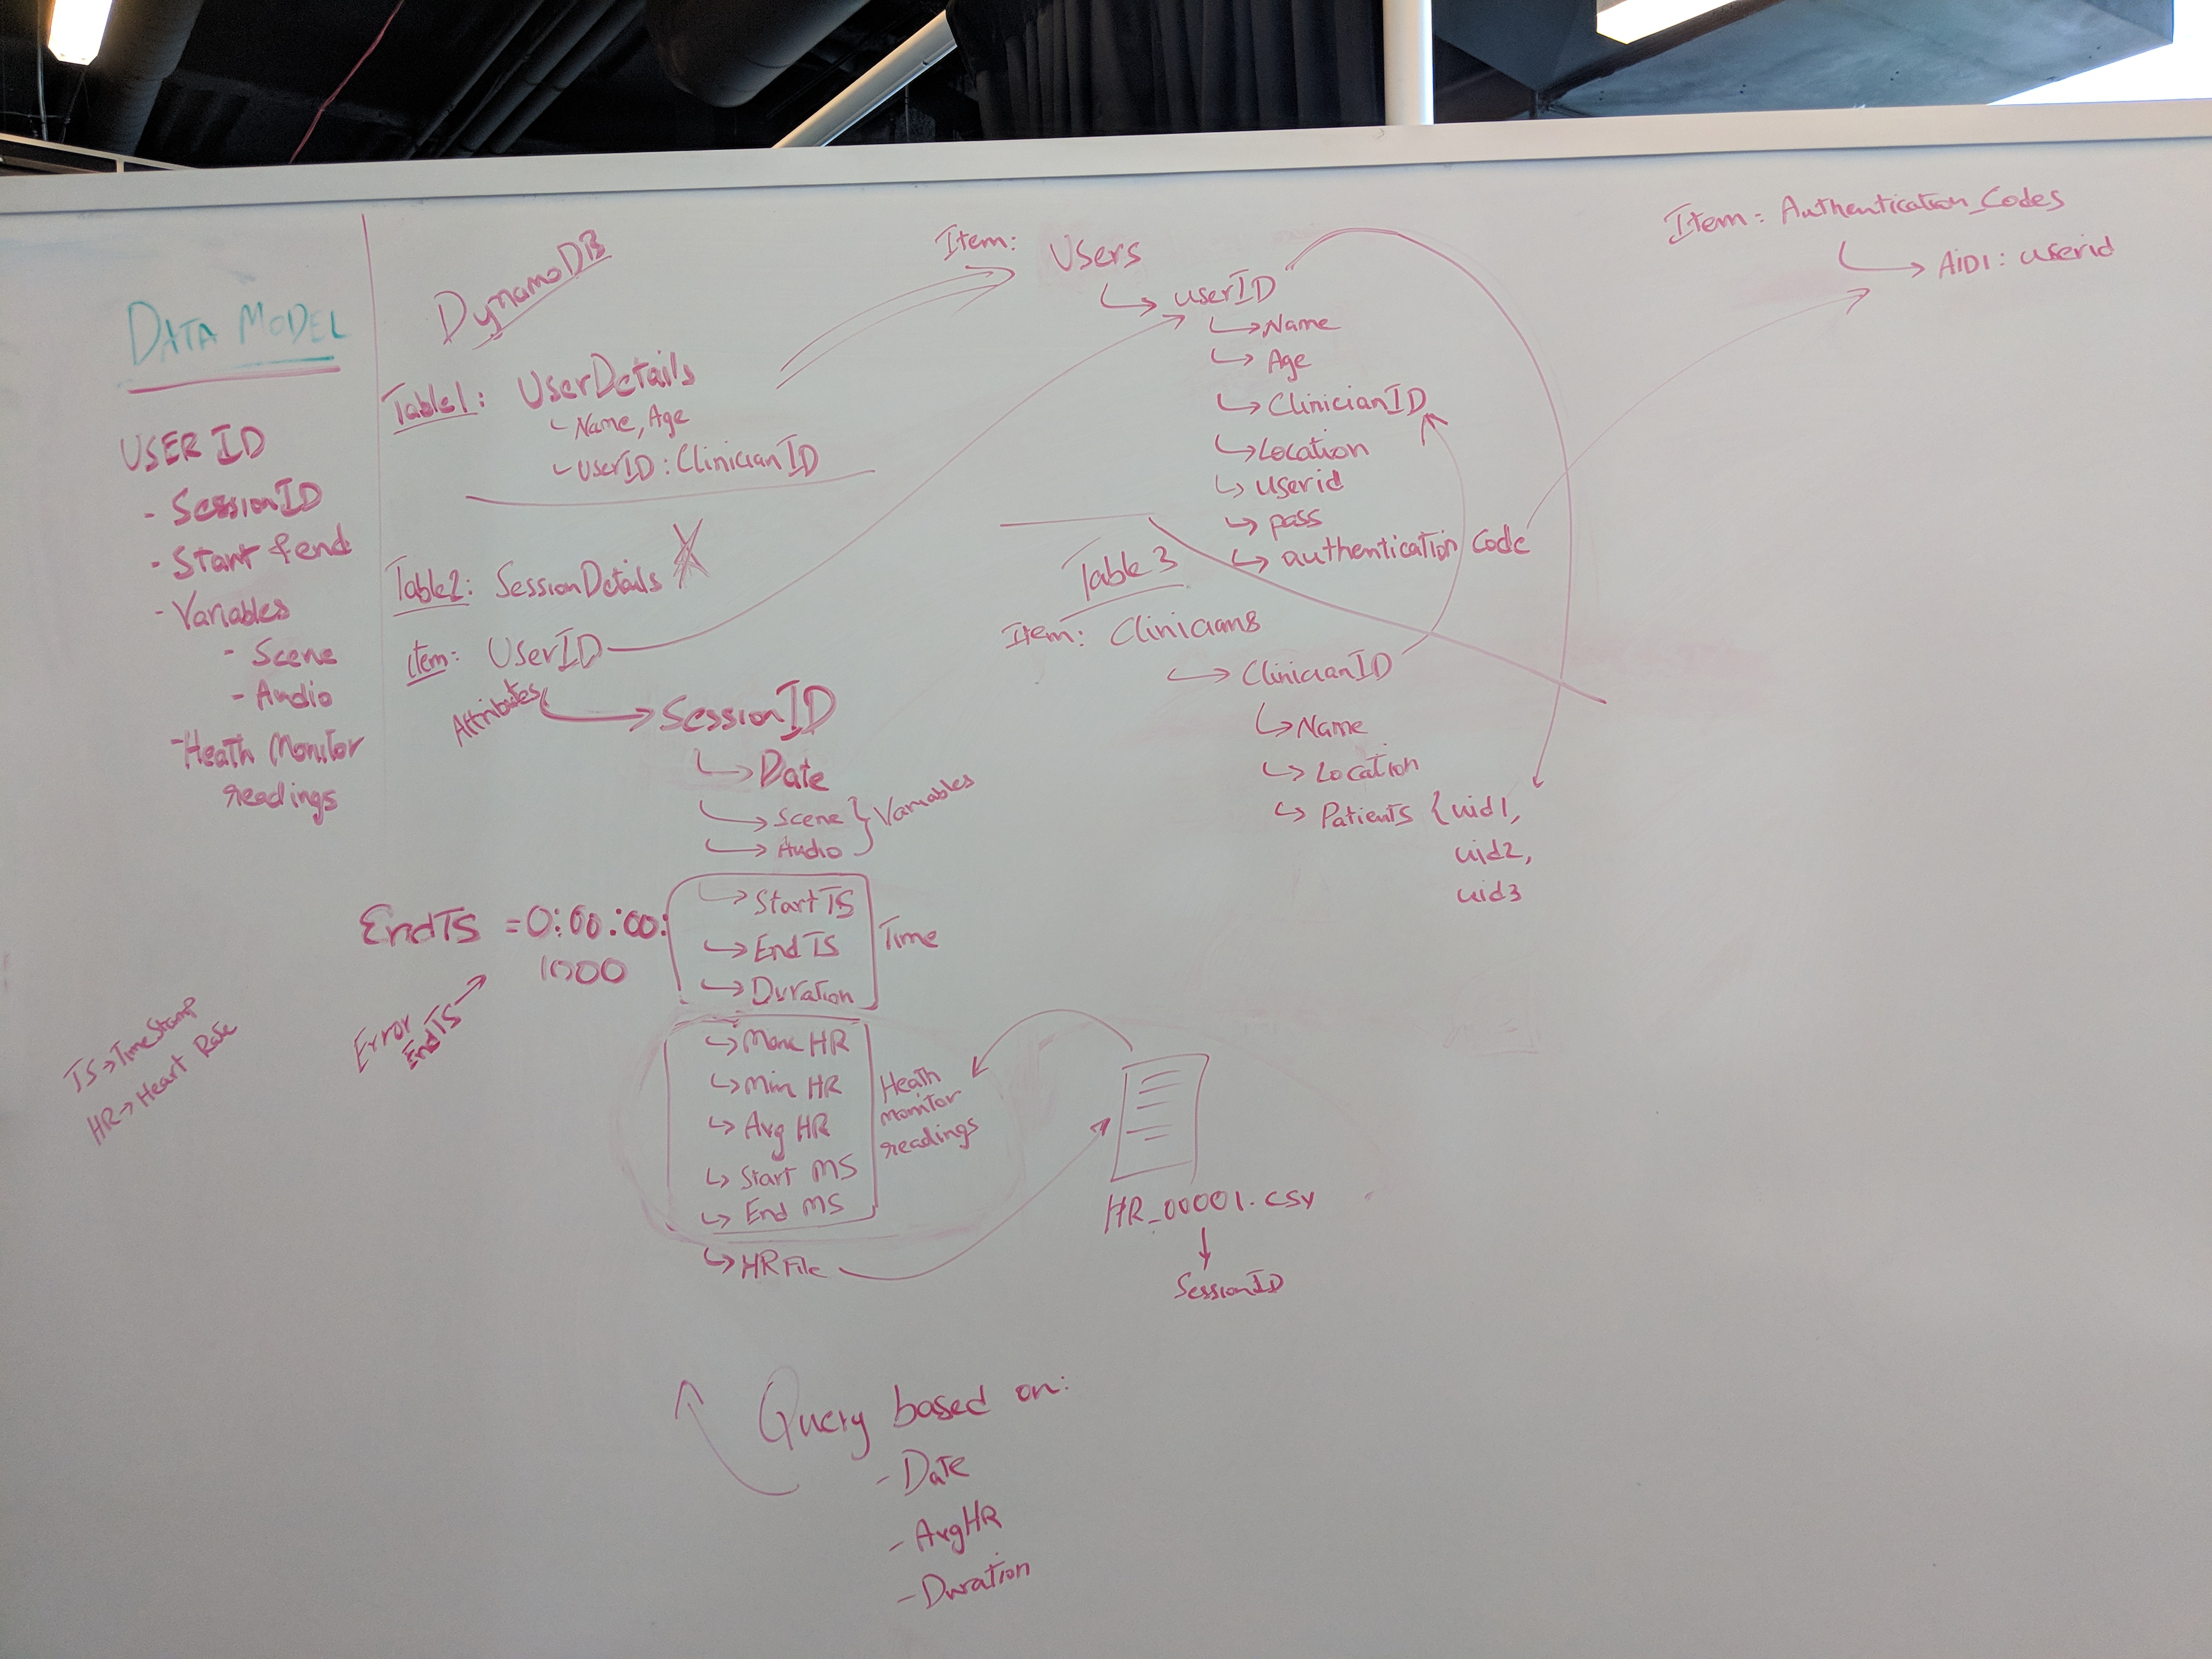 DATA MODEL
USER ID
- SessionID
- Start & end
- Variables
- Scene
- Audio
- Heath Monitor
readings
TS→TimeStamp
HR→Heart Rate
DynamoDB
Table1: UserDetails
Name, Age
UserID: ClinicianID
Table2: SessionDetails
item: UserID
Attributes
SessionID
Date
Scene
Audio
Variables
StartTS
EndTS
Duration
Time
EndTS = 0:00:00:
1000
Error
EndTS
Max HR
Min HR
Avg HR
Start MS
End MS
Heath
monitor
readings
HRFile
HR_00001.csv
SessionID
Query based on:
- Date
- AvgHR
- Duration
Item: Users
userID
Name
Age
ClinicianID
Location
userid
pass
authentication code
Table 3
Item: Clinicians
ClinicianID
Name
Location
Patients {uid1,
uid2,
uid3
Item: Authentication_Codes
AID1: userid